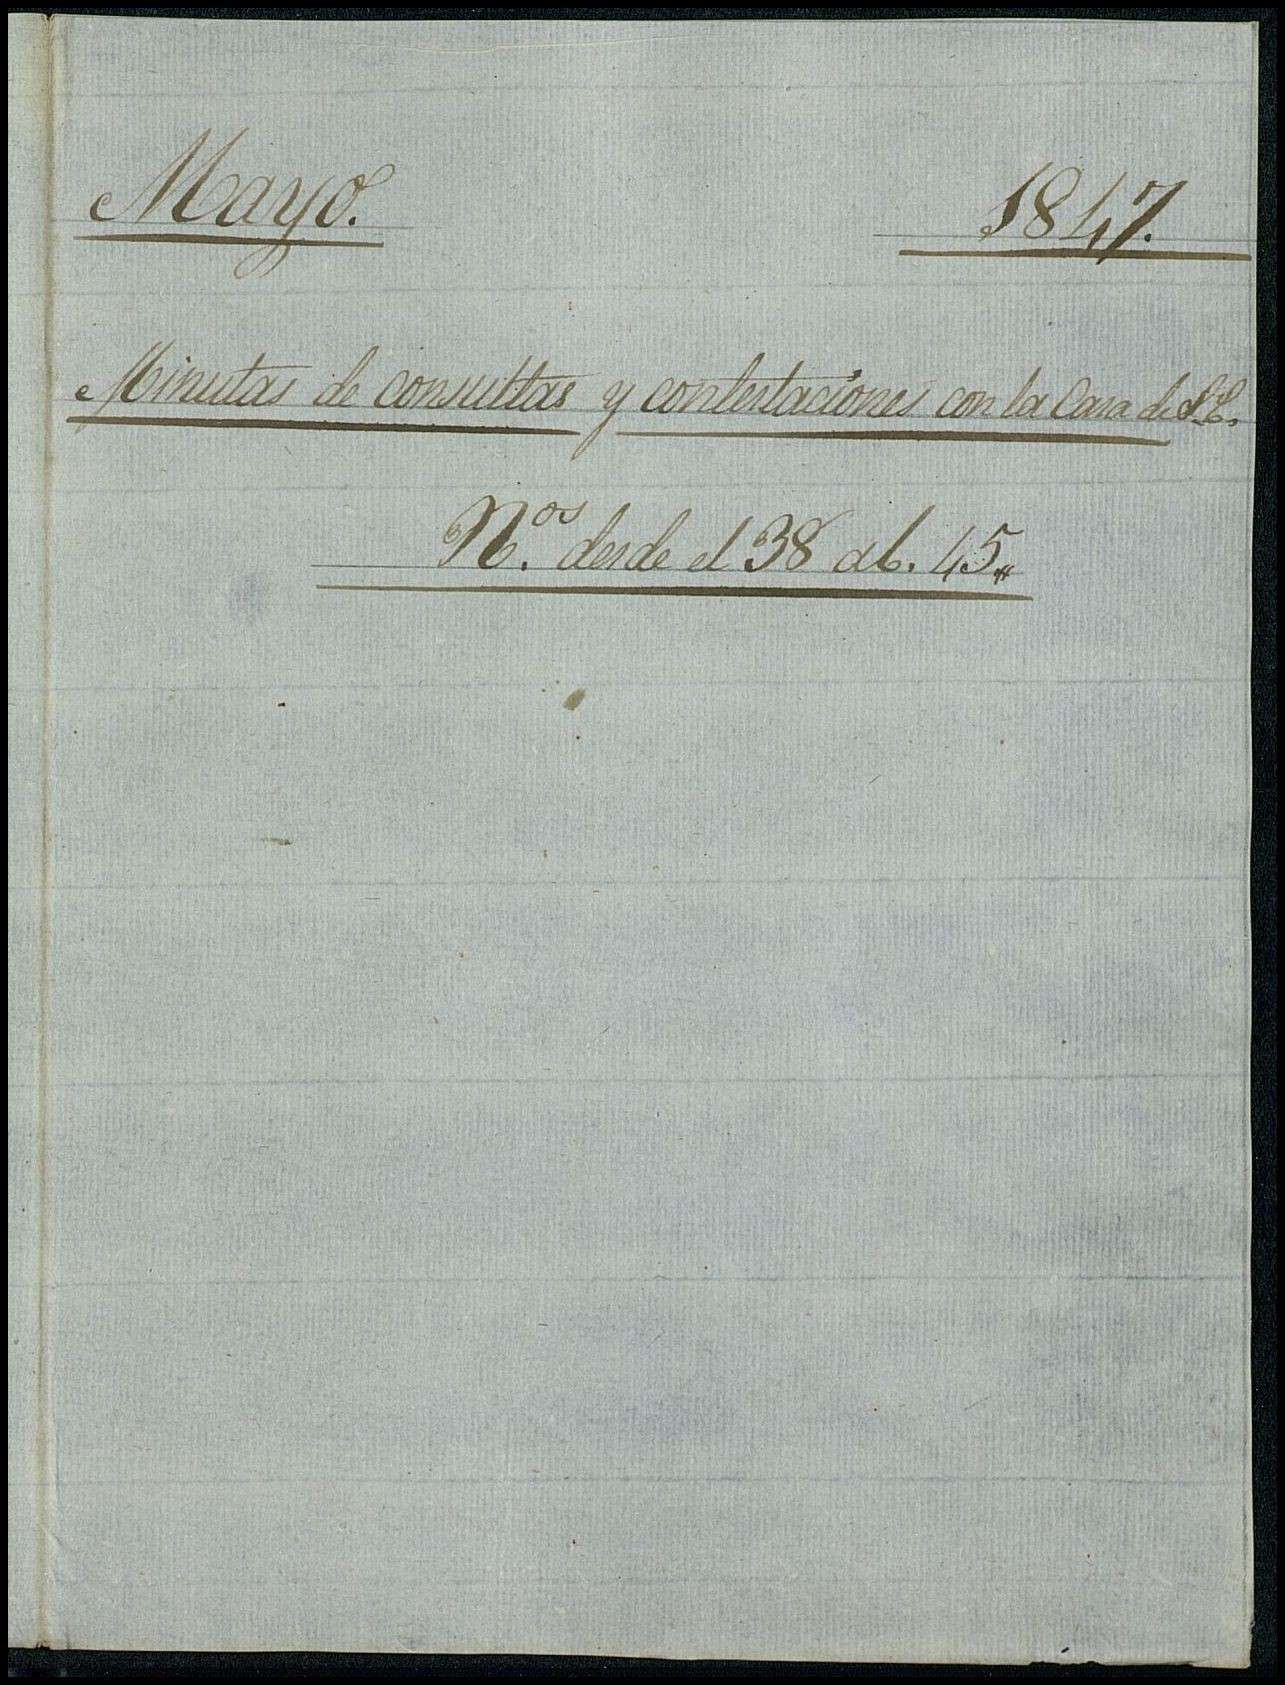 Mayo. 1847.
Minutas de consultas y contestaciones con la Casa de S.E.
N.os desde el 38 al. 45.